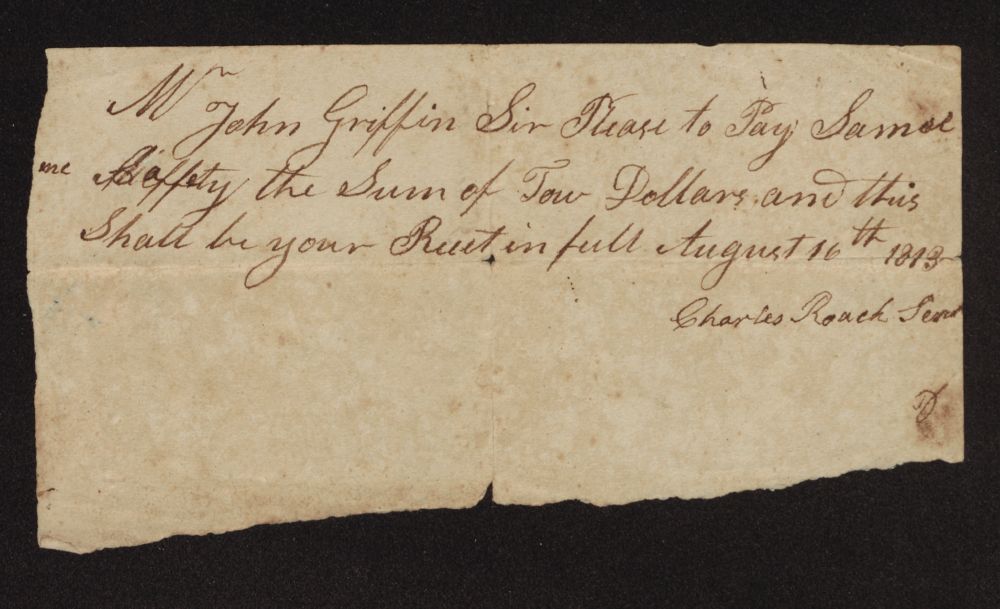 Mr John Griffin Sir Please to Pay Samoe
me the Sum of Tow Dollars and this
Shall be your Recet in full August 16th 1813
Charles Roach Senr
D